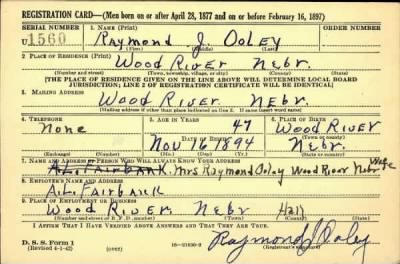 REGISTRATION CARD—(Men born on or after April 28, 1877 and on or before February 16, 1897)
SERIAL NUMBER 1. NAME (Print) ORDER NUMBER
U 1560 Raymond J Ooley
(First) (Middle) (Last)
2. PLACE OF RESIDENCE (Print)
Wood River Nebr.
(Number and street) (Town, township, village, or city) (County) (State)
[THE PLACE OF RESIDENCE GIVEN ON THE LINE ABOVE WILL DETERMINE LOCAL BOARD
JURISDICTION; LINE 2 OF REGISTRATION CERTIFICATE WILL BE IDENTICAL]
3. MAILING ADDRESS
Wood River Nebr.
[Mailing address if other than place indicated on line 2. If same insert word same]
4. TELEPHONE 5. AGE IN YEARS 6. PLACE OF BIRTH
None 47 Wood River
DATE OF BIRTH (Town or county)
Nov 16 1894 Nebr.
(Exchange) (Number) (Mo.) (Day) (Yr.) (State or country)
7. NAME AND ADDRESS OF PERSON WHO WILL ALWAYS KNOW YOUR ADDRESS
A.L. Fairbank. Mrs Raymond Ooley Wood River Nebr Wife
8. EMPLOYER'S NAME AND ADDRESS
A.L. Fairbank
9. PLACE OF EMPLOYMENT OR BUSINESS
Wood River Nebr Hall
(Number and street or R. F. D. number) (Town) (County) (State)
I AFFIRM THAT I HAVE VERIFIED ABOVE ANSWERS AND THAT THEY ARE TRUE.
D. S. S. Form 1
(Revised 4-1-42) (over) 16—21630-2
Raymond J Ooley